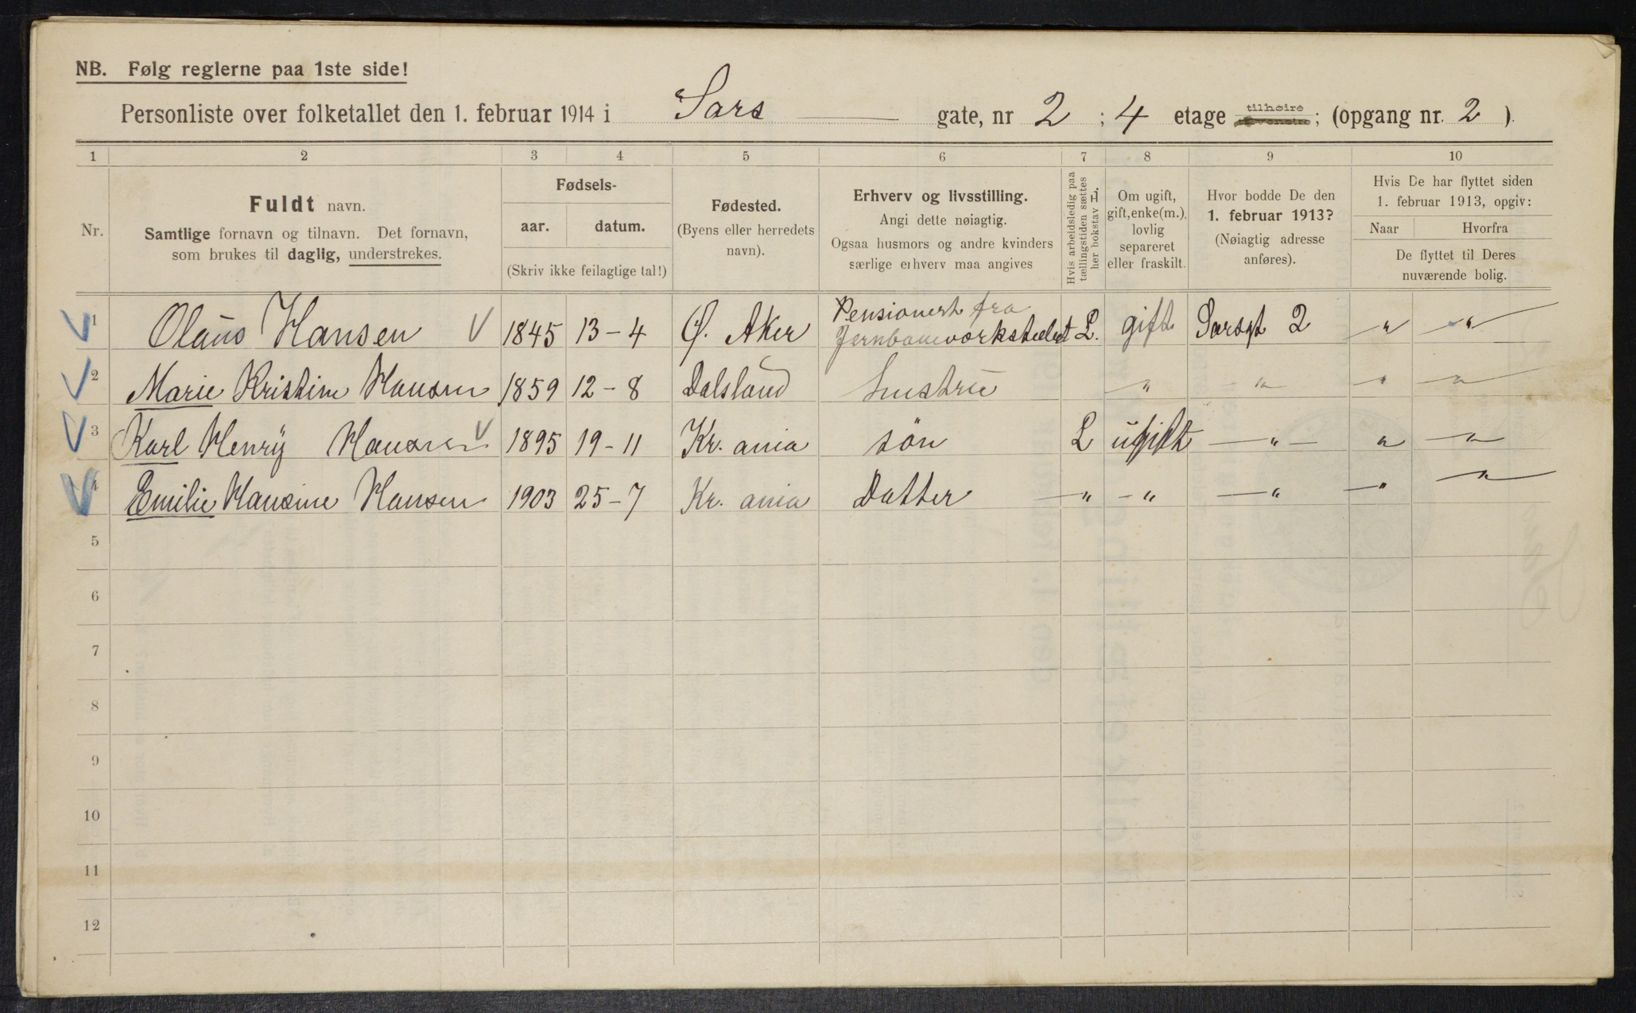 NB. Følg reglerne paa 1ste side!
Personliste over folketallet den 1. februar 1914 i Sars gate, nr 2; 4 etage tilhøire; (opgang nr. 2).
1 2 3 4 5 6 7 8 9 10
Nr.
Fuldt navn.
Samtlige fornavn og tilnavn. Det fornavn,
som brukes til daglig, understrekes.
Fødsels-
aar. datum.
(Skriv ikke feilagtige tal!)
Fødested.
(Byens eller herredets
navn).
Erhverv og livsstilling.
Angi dette nøiagtig.
Ogsaa husmors og andre kvinders
særlige erhverv maa angives
Hvis arbeidsledig paa
tællingstiden sættes
her bokstav L.
Om ugift,
gift, enke(m.),
lovlig
separeret
eller fraskilt.
Hvor bodde De den
1. februar 1913?
(Nøiagtig adresse
anføres).
Hvis De har flyttet siden
1. februar 1913, opgiv:
Naar Hvorfra
De flyttet til Deres
nuværende bolig.
1 Olaus Hansen V 1845 13-4 Ø. Aker Pensionert fra Jernbaneverkstedet L. gift Sarsgt 2 " "
2 Marie Kristine Hansen 1859 12-8 Dalsland hustru " " " "
3 Karl Henry Hansen V 1895 19-11 Kr.ania søn L ugift " " "
4 Emilie Hansine Hansen 1903 25-7 Kr.ania Datter " " " " "
5
6
7
8
9
10
11
12